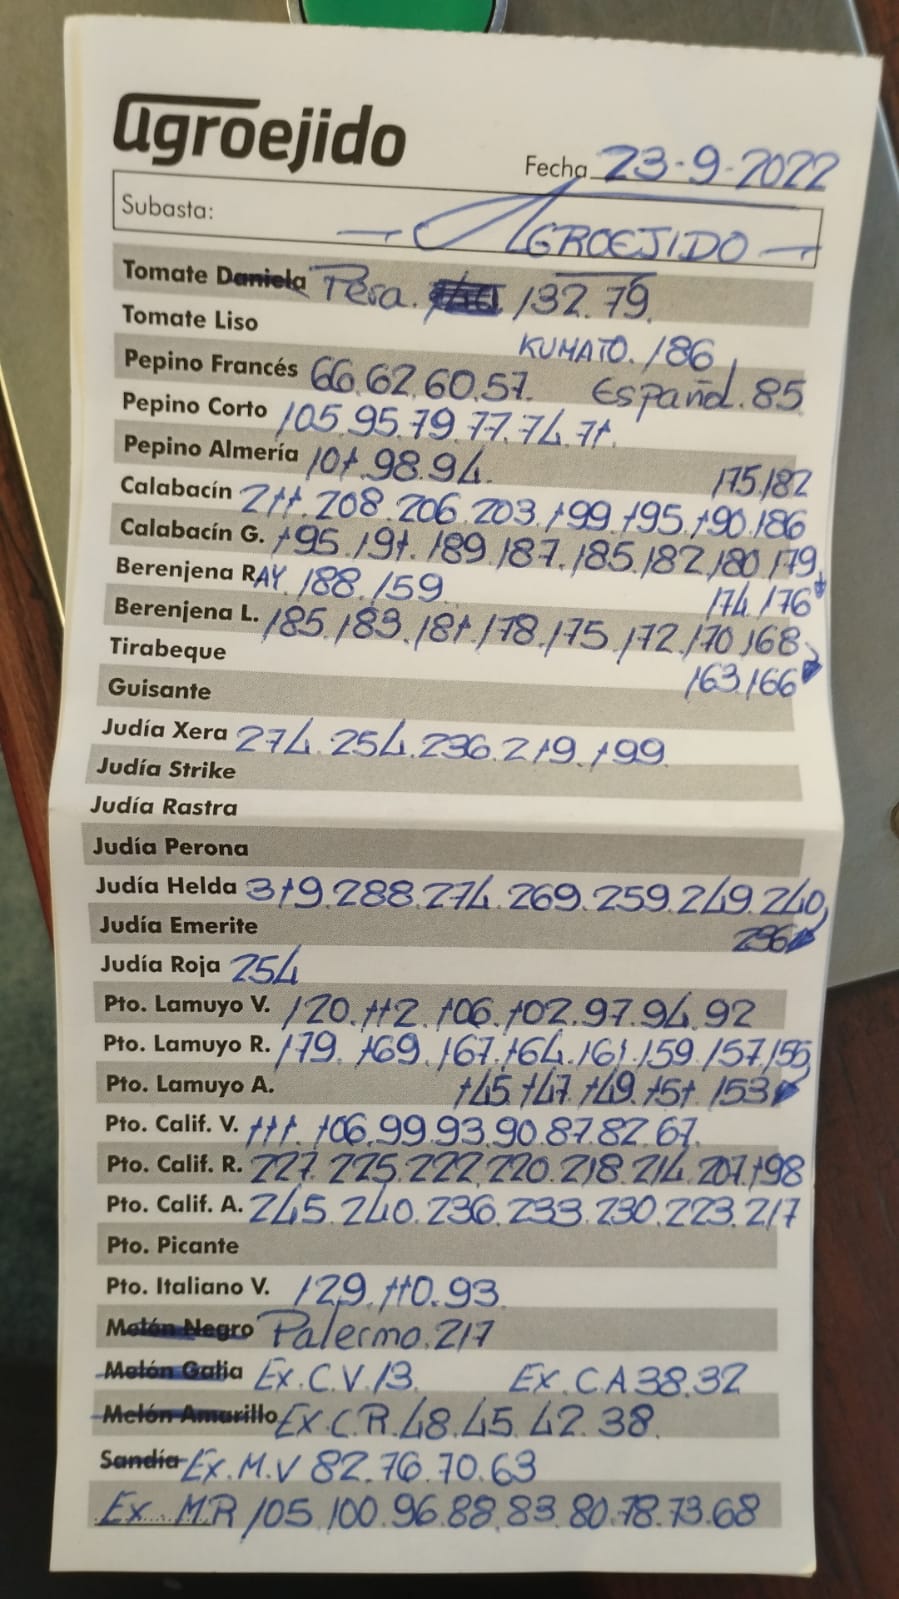 agroejido
Fecha 23-9-2022
Subasta: AGROEJIDO
Tomate Daniela Pera. 132.79.
Tomate Liso KUMATO. 186
Pepino Francés 66.62.60.57. Español. 85
Pepino Corto 105.95.79.77.74.71.
Pepino Almería 101.98.94. 175.182
Calabacín 211.208.206.203.199.195.190.186
Calabacín G. 195.191.189.187.185.182.180.179
Berenjena RAY. 188.159 174.176
Berenjena L. 185.183.181.178.175.172.170.168
Tirabeque 163.166
Guisante
Judía Xera 274.254.236.219.199
Judía Strike
Judía Rastra
Judía Perona
Judía Helda 319.288.274.269.259.249.240
Judía Emerite 236
Judía Roja 254
Pto. Lamuyo V. 120.112.106.102.97.94.92
Pto. Lamuyo R. 179.169.167.164.161.159.157.155
Pto. Lamuyo A. 145.147.149.151.153
Pto. Calif. V. 111.106.99.93.90.87.82.67.
Pto. Calif. R. 227.225.222.220.218.214.207.198
Pto. Calif. A. 245.240.236.233.230.223.217
Pto. Picante
Pto. Italiano V. 129.110.93
Melón Negro Palermo. 217
Melón Galia Ex.C.V.13 Ex.C A 38.32
Melón Amarillo Ex.C.R.48.45.42.38
Sandía Ex.M.V 82.76.70.63
Ex. MR 105.100.96.88.83.80.78.73.68